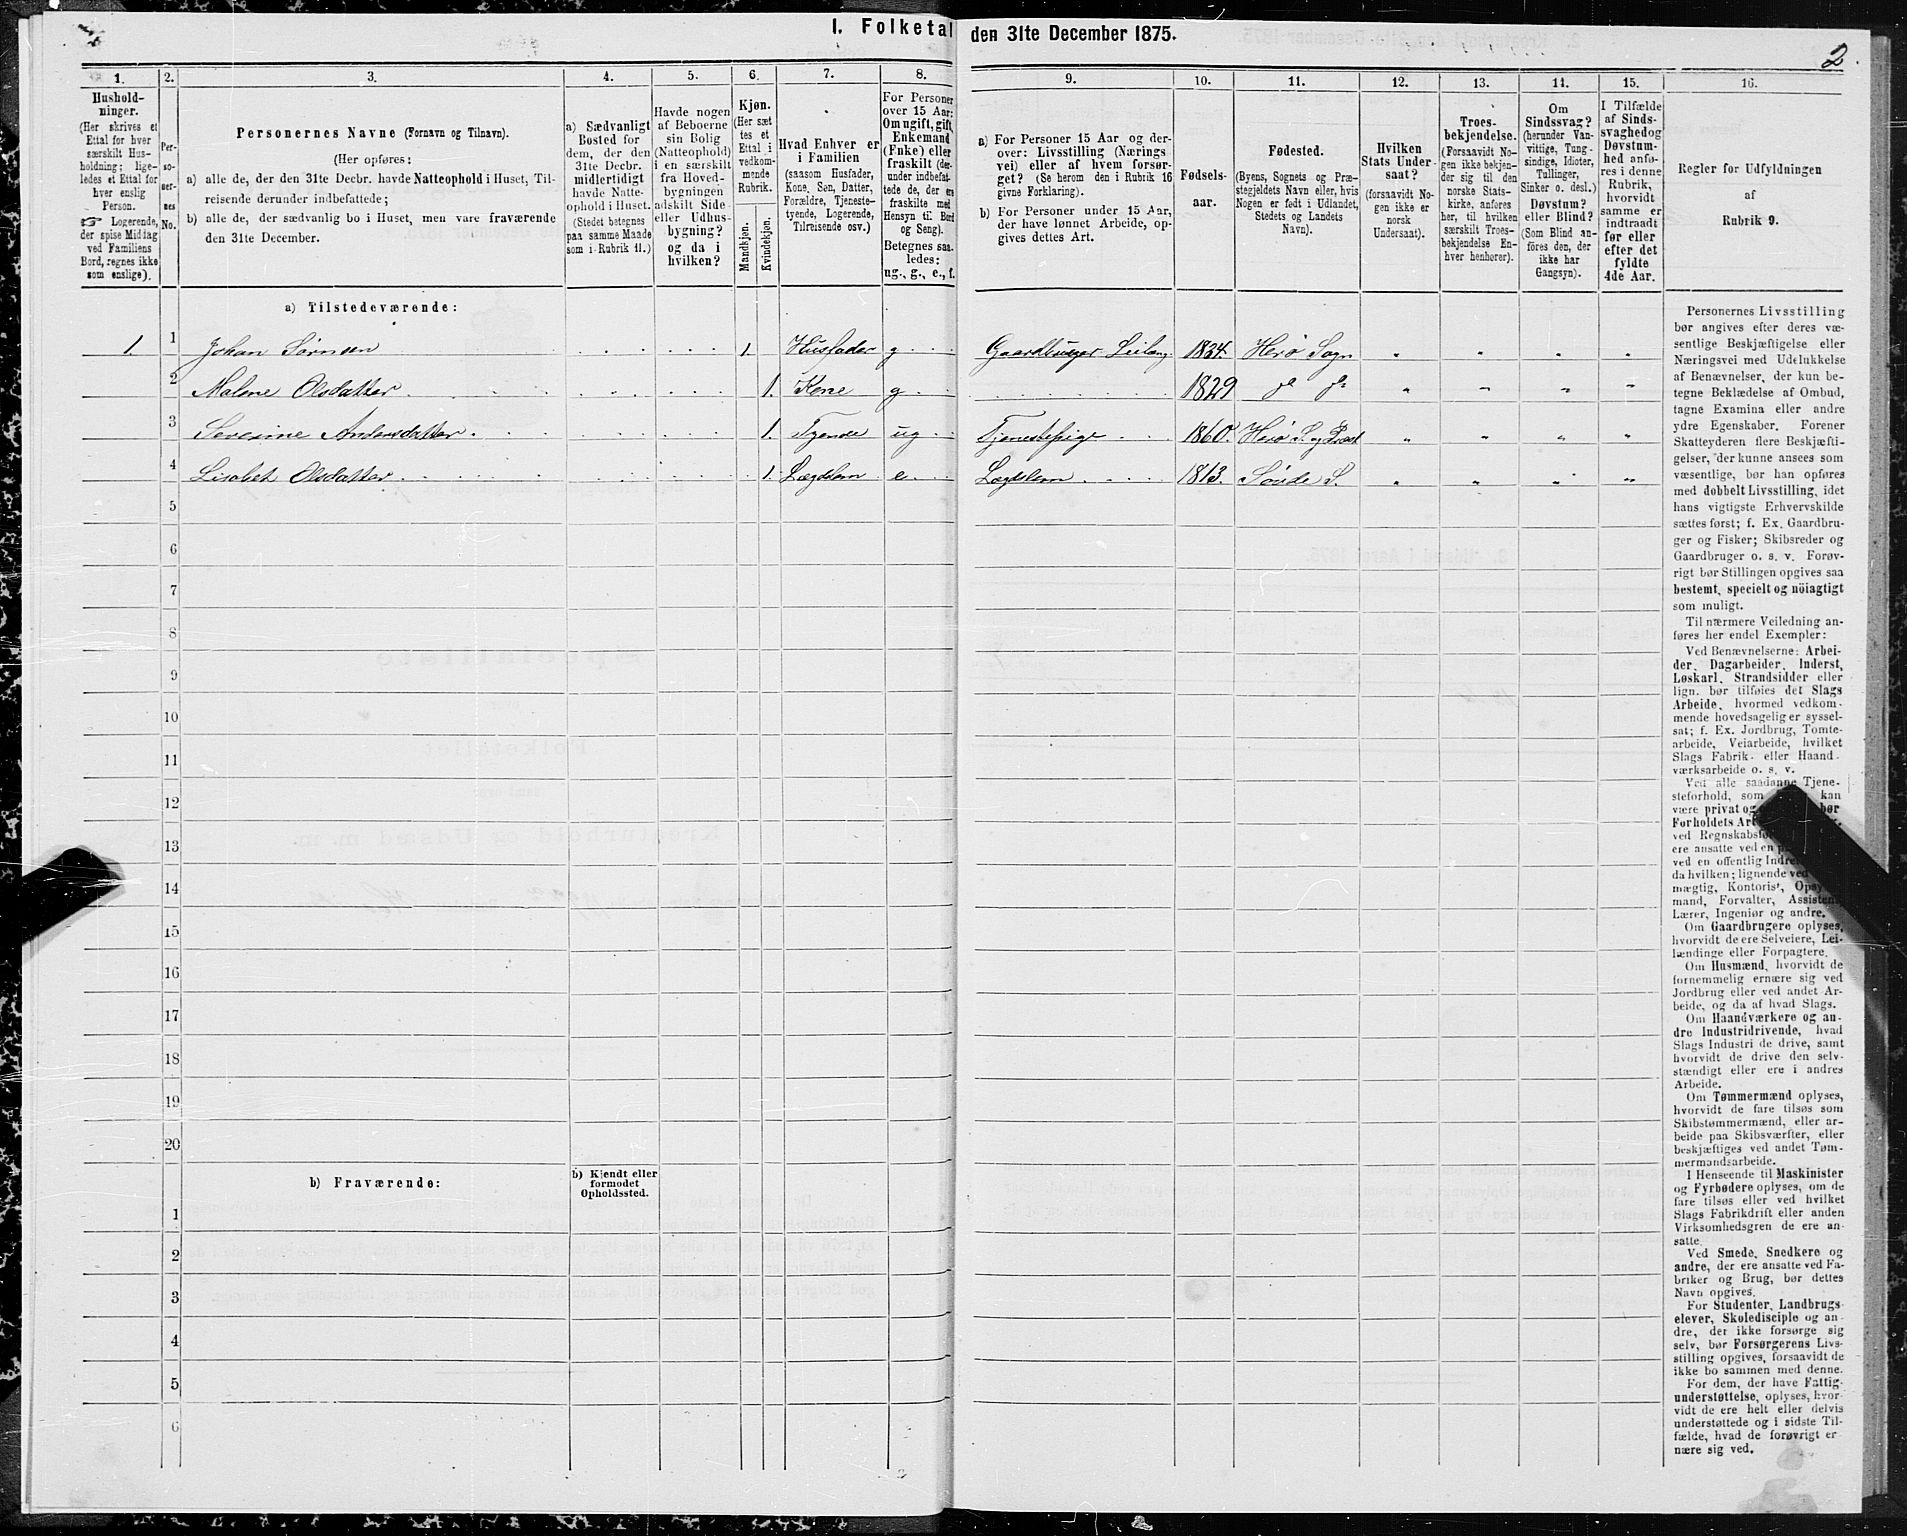 I. Folketal den 31te December 1875.
2
1. 2. 3. 4. 5. 6. 7. 8. 9. 10. 11. 12. 13. 14. 15. 16.
Hushold-
ninger.
(Her skrives et
Ettal for hver
særskilt Hus-
holdning; lige-
ledes et Ettal for
hver enslig
Person.
☞ Logerende,
der spise Middag
ved Familiens
Bord, regnes ikke
som enslige).
Per-
so-
ner-
nes
No.
Personernes Navne (Fornavn og Tilnavn).
(Her opføres:
a) alle de, der den 31te Decbr. havde Natteophold i Huset, Til-
reisende derunder indbefattede;
b) alle de, der sædvanlig bo i Huset, men vare fraværende
den 31te December.
a) Sædvanligt
Bosted for
dem, der den
31te Decbr.
midlertidigt
havde Natte-
ophold i Huset.
(Stedet betegnes
paa samme Maade
som i Rubrik 11.)
Havde nogen
af Beboerne
sin Bolig
(Natteophold)
i en særskilt
fra Hoved-
bygningen
adskilt Side-
eller Udhus-
bygning?
og da i
hvilken?
Kjøn.
(Her sæt
tes et
Ettal i
vedkom-
mende
Rubrik.
Mandkjøn.
Kvindekjøn.
Hvad Enhver er
i Familien
(saasom Husfader,
Kone, Søn, Datter,
Forældre, Tjeneste-
tyende, Logerende,
Tilreisende osv.)
For Personer
over 15 Aar:
Om ugift, gift,
Enkemand
(Enke) eller
fraskilt (der-
under indbefat-
tede de, der ere
fraskilte med
Hensyn til Bord
og Seng).
Betegnes saa-
ledes:
ug., g., e., f.
a) For Personer 15 Aar og der-
over: Livsstilling (Nærings
vei) eller af hvem forsør-
get? (Se herom den i Rubrik 16
givne Forklaring).
b) For Personer under 15 Aar,
der have lønnet Arbeide, op-
gives dettes Art.
Fødsels-
aar.
Fødested.
(Byens, Sognets og Præ-
stegjeldets Navn eller, hvis
Nogen er født i Udlandet,
Stedets og Landets
Navn).
Hvilken
Stats Under-
saat?
(forsaavidt No-
gen ikke er
norsk
Undersaat).
Troes-
bekjendelse.
(Forsaavidt No-
gen ikke bekjen-
der sig til den
norske Stats-
kirke, anføres
her, til hvilken
særskilt Troes-
bekjendelse En-
hver henhører).
Om
Sindssvag?
(herunder Van-
vittige, Tung-
sindige, Idioter,
Tullinger,
Sinker o. desl.)
Døvstum?
eller Blind?
(Som Blind an-
føres den, der
ikke har
Gangsyn).
I Tilfælde
af Sinds-
svaghed og
Døvstum-
hed anfø-
res i denne
Rubrik,
hvorvidt
samme er
indtraadt
før eller
efter det
fyldte
4de Aar.
Regler for Udfyldningen
af
Rubrik 9.
a) Tilstedeværende:
1. 1 Johan Sørnsen 1. Husfader g Gaardbruger Leilæng 1834. Herø Sogn " " " "
2 Malene Olsdatter 1. Kone g 1829 do do " " " "
3 Severine Andersdatter 1. Tyende ug Tjenestepige 1860. Herø S. og Præst " " " "
4 Lisabet Olsdatter 1. Lægdslem e Lægdslem 1813. Sövde S. " " " "
5
6
7
8
9
10
11
12
13
14
15
16
17
18
19
20
b) Fraværende:
b) Kjendt eller
formodet
Opholdssted.
1
2
3
4
5
6
Personernes Livsstilling
bør angives efter deres væ-
sentlige Beskjæftigelse eller
Næringsvei med Udelukkelse
af Benævnelser, der kun be-
tegne Beklædelse af Ombud,
tagne Examina eller andre
ydre Egenskaber. Forener
Skatteyderen flere Beskjæfti-
gelser, der kunne ansees som
væsentlige, bør han opføres
med dobbelt Livsstilling, idet
hans vigtigste Erhvervskilde
sættes først; f. Ex. Gaardbru-
ger og Fisker; Skibsreder og
Gaardbruger o. s. v. Forøv-
rigt bør Stillingen opgives saa
bestemt, specielt og nöiagtigt
som muligt.
Til nærmere Veiledning an-
føres her endel Exempler:
Ved Benævnelserne: Arbei-
der, Dagarbeider, Inderst,
Løskarl, Strandsidder eller
lign. bør tilføies det Slags
Arbeide, hvormed vedkom-
mende hovedsagelig er syssel-
sat; f. Ex. Jordbrug, Tomte-
arbeide, Veiarbeide, hvilket
Slags Fabrik- eller Haand-
værksarbeide o. s. v.
Ved alle saadanne Tjene-
steforhold, som kan
være privat og bør
Forholdets Ar
ved Regnskabsfø
ere ansatte ved en
ved en offentlig Indre
da hvilken; lignende ved
mægtig, Kontorist, Opsy
mand, Forvalter, Assistent,
Lærer, Ingeniør og andre.
Om Gaardbrugere oplyses,
hvorvidt de ere Selveiere, Lei-
lændinge eller Forpagtere.
Om Husmænd, hvorvidt de
fornemmelig ernære sig ved
Jordbrug eller ved andet Ar-
beide, og da af hvad Slags.
Om Haandværkere og an-
dre Industridrivende, hvad
Slags Industri de drive, samt
hvorvidt de drive den selv-
stændigt eller ere i andres
Arbeide.
Om Tømmermænd oplyses,
hvorvidt de fare tilsøs som
Skibstømmermænd, eller ar-
beide paa Skibsværfter, eller
beskjæftiges ved andet Tøm-
mermandsarbeide.
I Henseende til Maskinister
og Fyrbødere oplyses, om de
fare tilsøs eller ved hvilket
Slags Fabrikdrift eller anden
Virksomhedsgren de ere an-
satte.
Ved Smede, Snedkere og
andre, der ere ansatte ved Fa-
briker og Brug, bør dettes
Navn opgives.
For Studenter, Landbrugs
elever, Skoledisciple og an-
dre, der ikke forsørge sig
selv, bør Forsørgerens Livs-
stilling opgives, forsaavidt de
ikke bo sammen med denne.
For dem, der have Fattig-
understøttelse, oplyses, hvor-
vidt de ere helt eller delvis
understøttede og i sidste Til-
fælde, hvad de forøvrigt er-
nære sig ved.